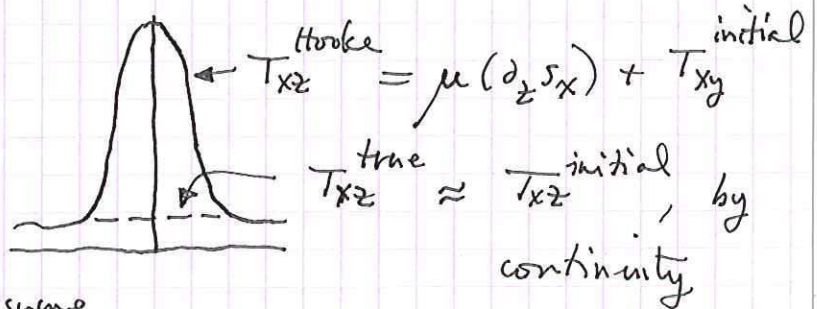 T_{xz}^{Hooke} = μ(∂_z s_x) + T_{xy}^{initial}
T_{xz}^{true} ≈ T_{xz}^{initial}, by
continuity